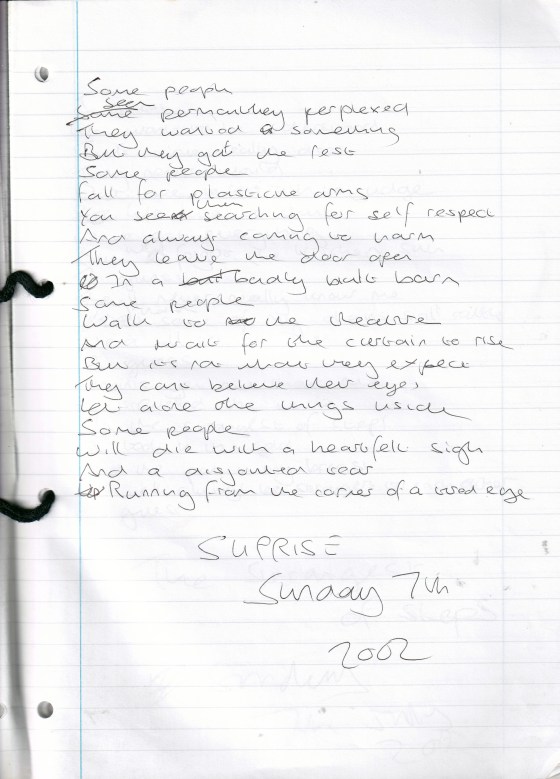 Some people
seem permanthey perplexed
They wanted a something
But they got the rest
Some people
fall for plasticine arms
You see them searching for self respect
And always coming to harm
They leave the door open
In a badly built barn
Some people
Walk to the theatre
And wait for the curtain to rise
But its not what they expect
They cant believe their eyes
Let alone the things inside
Some people
Will die with a heartfelt sigh
And a disjointed tear
Running from the corner of a tired eye
SUPRISE
Sunday 7th
2002